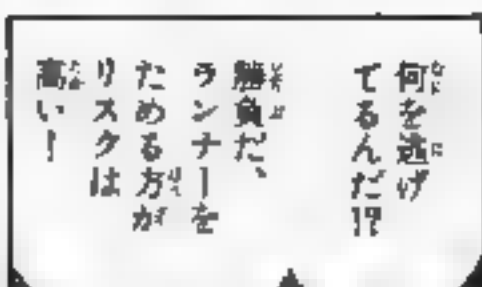 何を逃げ
てるんだ!?
勝負だ、
ランナーを
ためる方が
リスクは
高い!